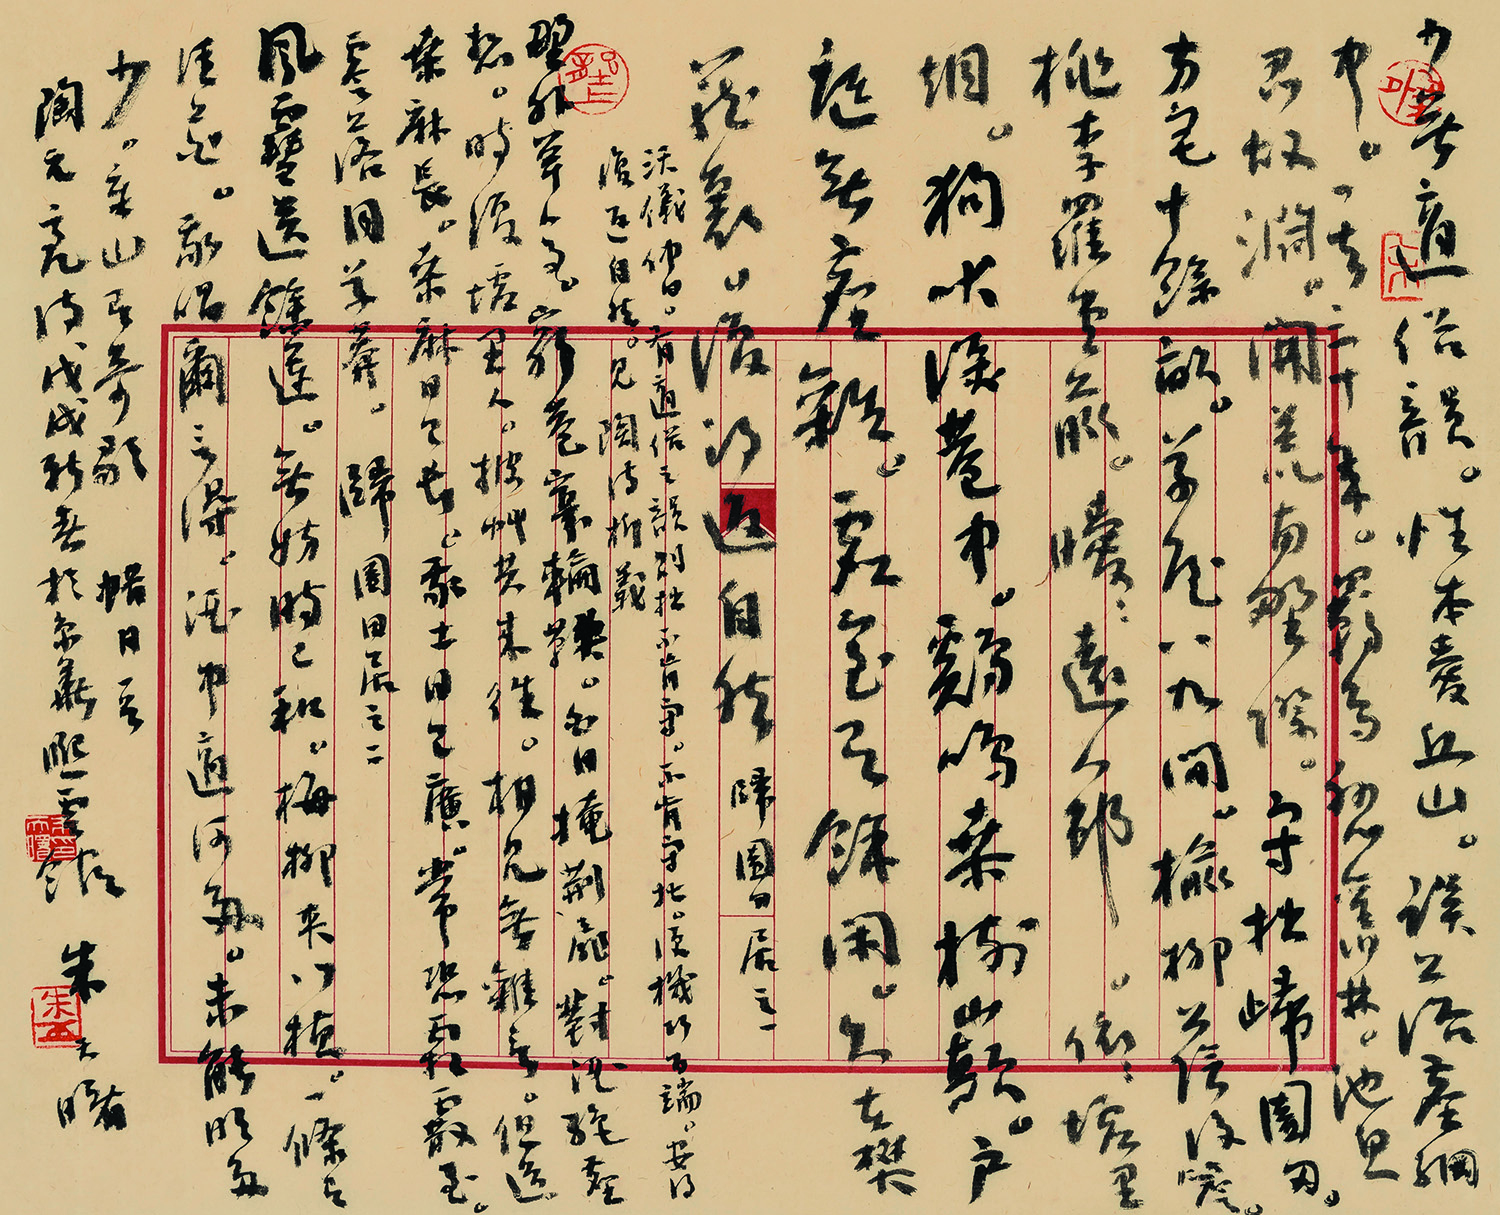 少無適俗韻。性本愛丘山。誤落塵網
中。一去三十年。羈鳥戀舊林。池魚
思故淵。開荒南野際。守拙歸園田。
方宅十餘畝。草屋八九間。榆柳蔭後簷。
桃李羅堂前。曖曖遠人邨。依依墟里
烟。狗吠深巷中。雞鳴桑樹巔。戶
庭無塵雜。虛室有餘閑。久在樊
籠裏。復得返自然 歸園田居之一
沃儀仲曰。有適俗之韻則拙不肯守。不肯守拙。便機巧百端。安得
復返自然。見陶詩析義
野外罕人事。窮巷寡輪鞅。白日掩荊扉。對酒絕塵
想。時復墟里人。披艸共來往。相見無雜言。但道
桑麻長。桑麻日已長。我土日已廣。常恐霜霰至。
零落同草莽。 歸園田居之二
風雪送餘運。無妨時已和。梅柳夾門植。一條有
佳花。我唱爾言得。酒中適何多。未能明多
少。章山有奇歌 蜡日
陶元亮詩戊戌新春於京華熙雲館 朱天曙